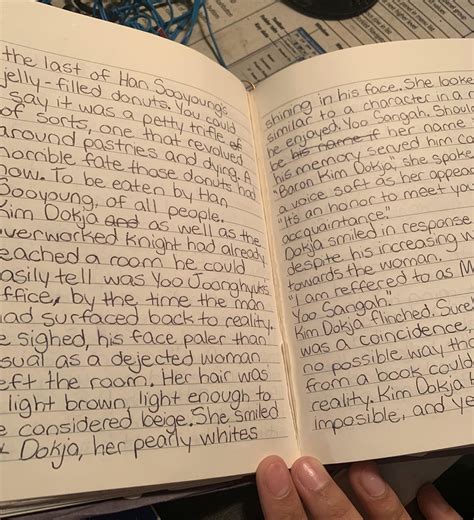 the last of Han Sooyoung's
jelly-filled donuts. You could
say it was a petty trifle of
of sorts, one that revolved
around pastries and dying. A
horrible fate those donuts had
now. To be eaten by Han
Sooyoung, of all people.
Kim Dokja and as well as the
overworked knight had already
reached a room he could
easily tell was Yoo Joonghyuk's
office, by the time the man
had surfaced back to reality.
He sighed, his face paler than
usual as a dejected woman
left the room. Her hair was
light brown, light enough to
be considered beige. She smiled
Dokja, her pearly whites
shining in his face. She looke
similar to a character in a
he enjoyed. Yoo Sangah. Shou
be his name if her name
his memory served him co
"Baron Kim Dokja" she spoke
a voice soft as her appear
"It's an honor to meet yo
acquaintance."
Dokja smiled in response
despite his increasing w
towards the woman.
"I am reffered to as
Yoo Sangah"
Kim Dokja flinched. Sure
was a coincidence.
no possible way tha
from a book could
reality. Kim Dokja
imposible, and ye